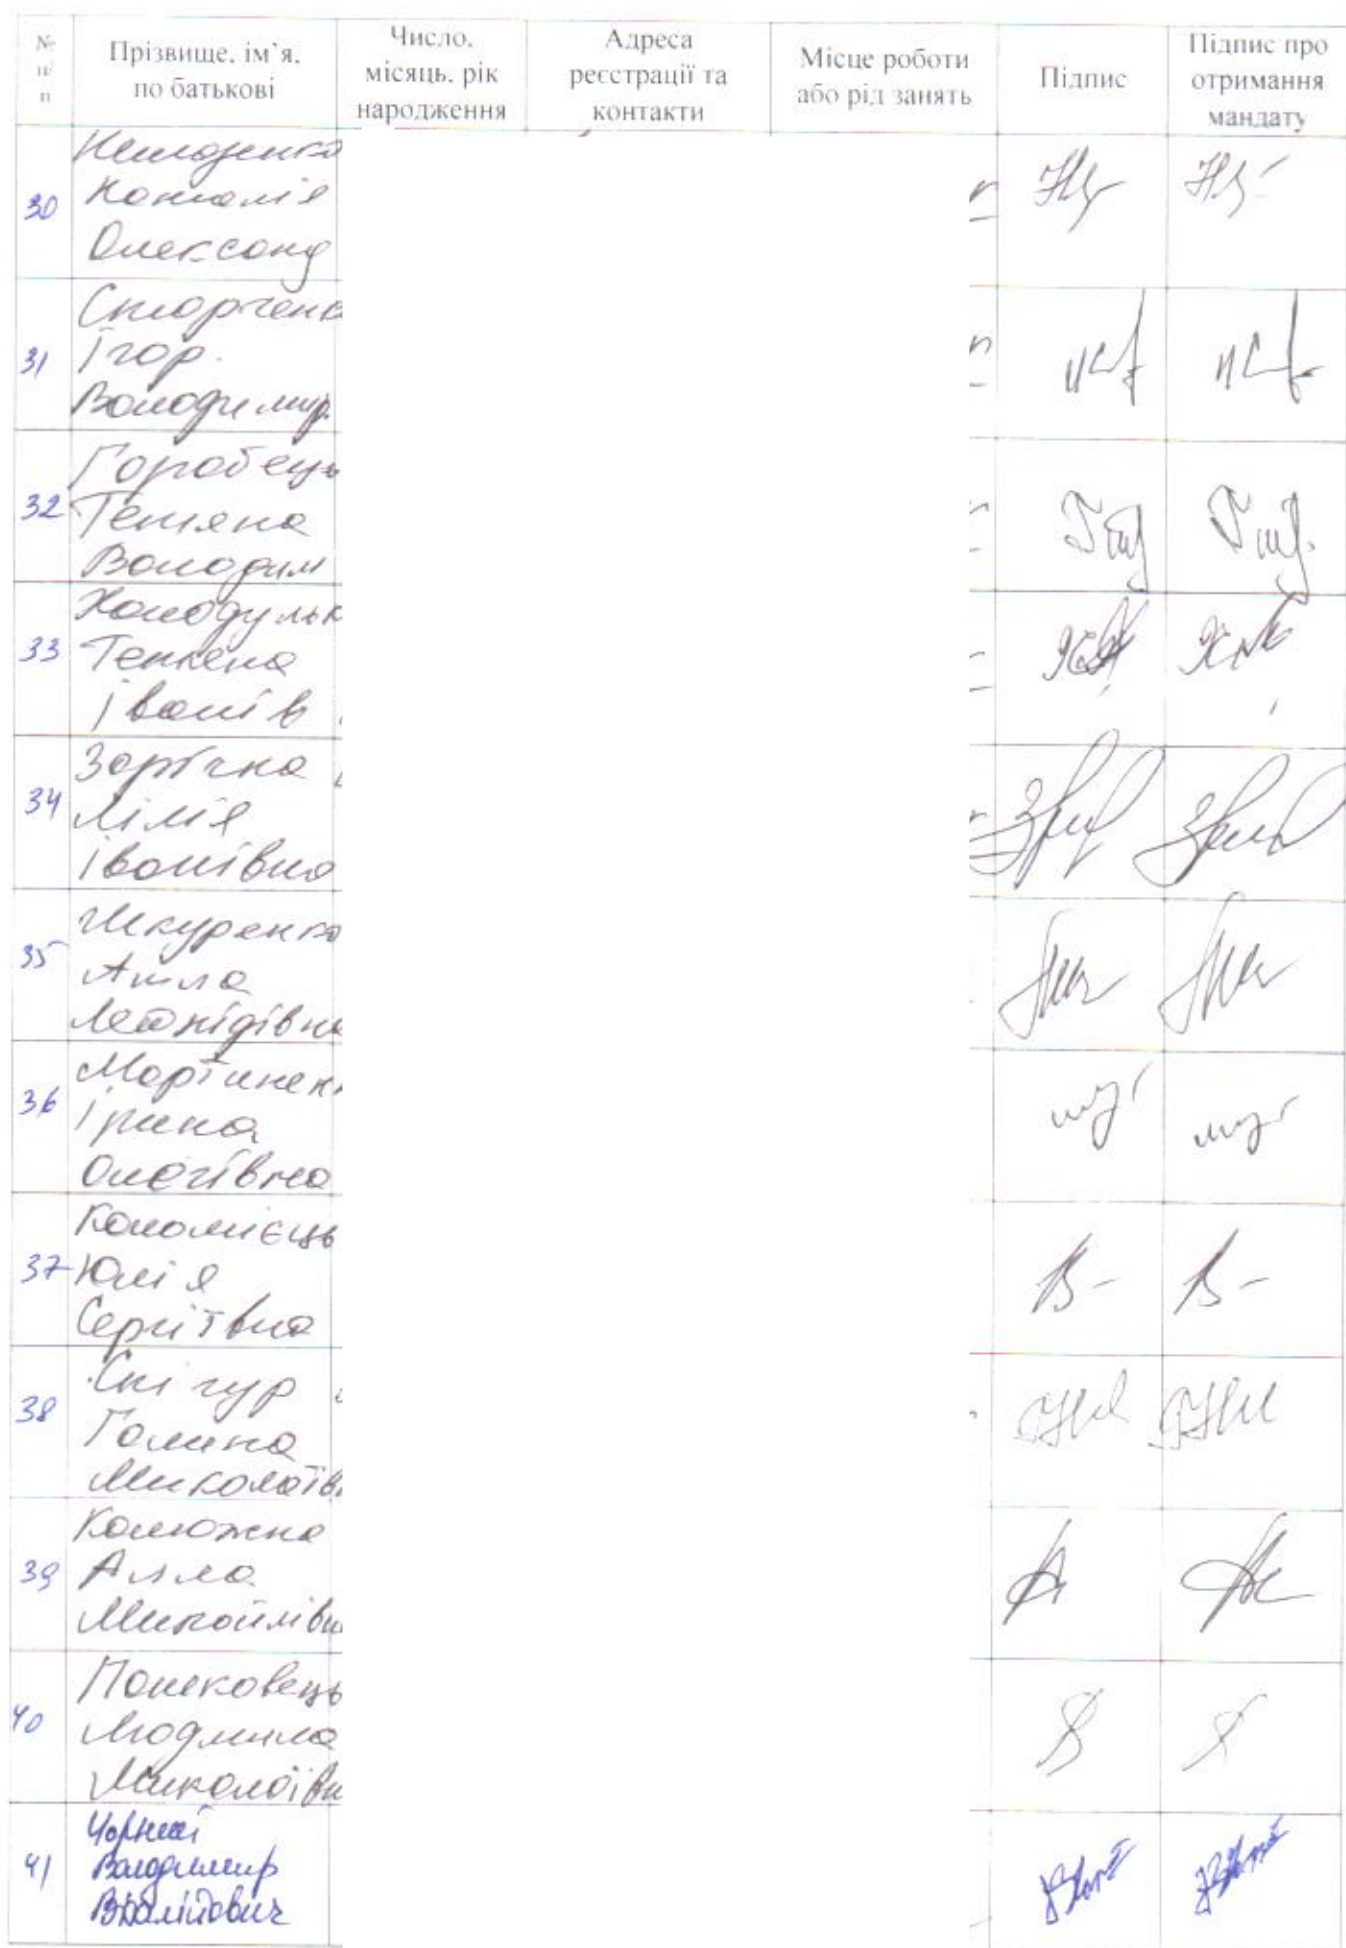 № п/п
Прізвище, ім’я, по батькові
Число, місяць, рік народження
Адреса реєстрації та контакти
Місце роботи або рід занять
Підпис
Підпис про отримання мандату
30
Наталія
Олександ
31
Ігор
Володимир
32
Горобець
Тетяна
Володим
33
Тетяна
Іванів
34
Зарічна
Лілія
Іванівна
35
Шкуренко
Алла
Леонідівна
36
Мартиненк
Ірина
Олегівна
37
Коломієць
Юлія
Сергіївна
38
Снігур
Галина
Миколаїв
39
Калюжна
Алла
Михайлівн
40
Людмила
Миколаївн
41
Чорний
Володимир
Віталійович